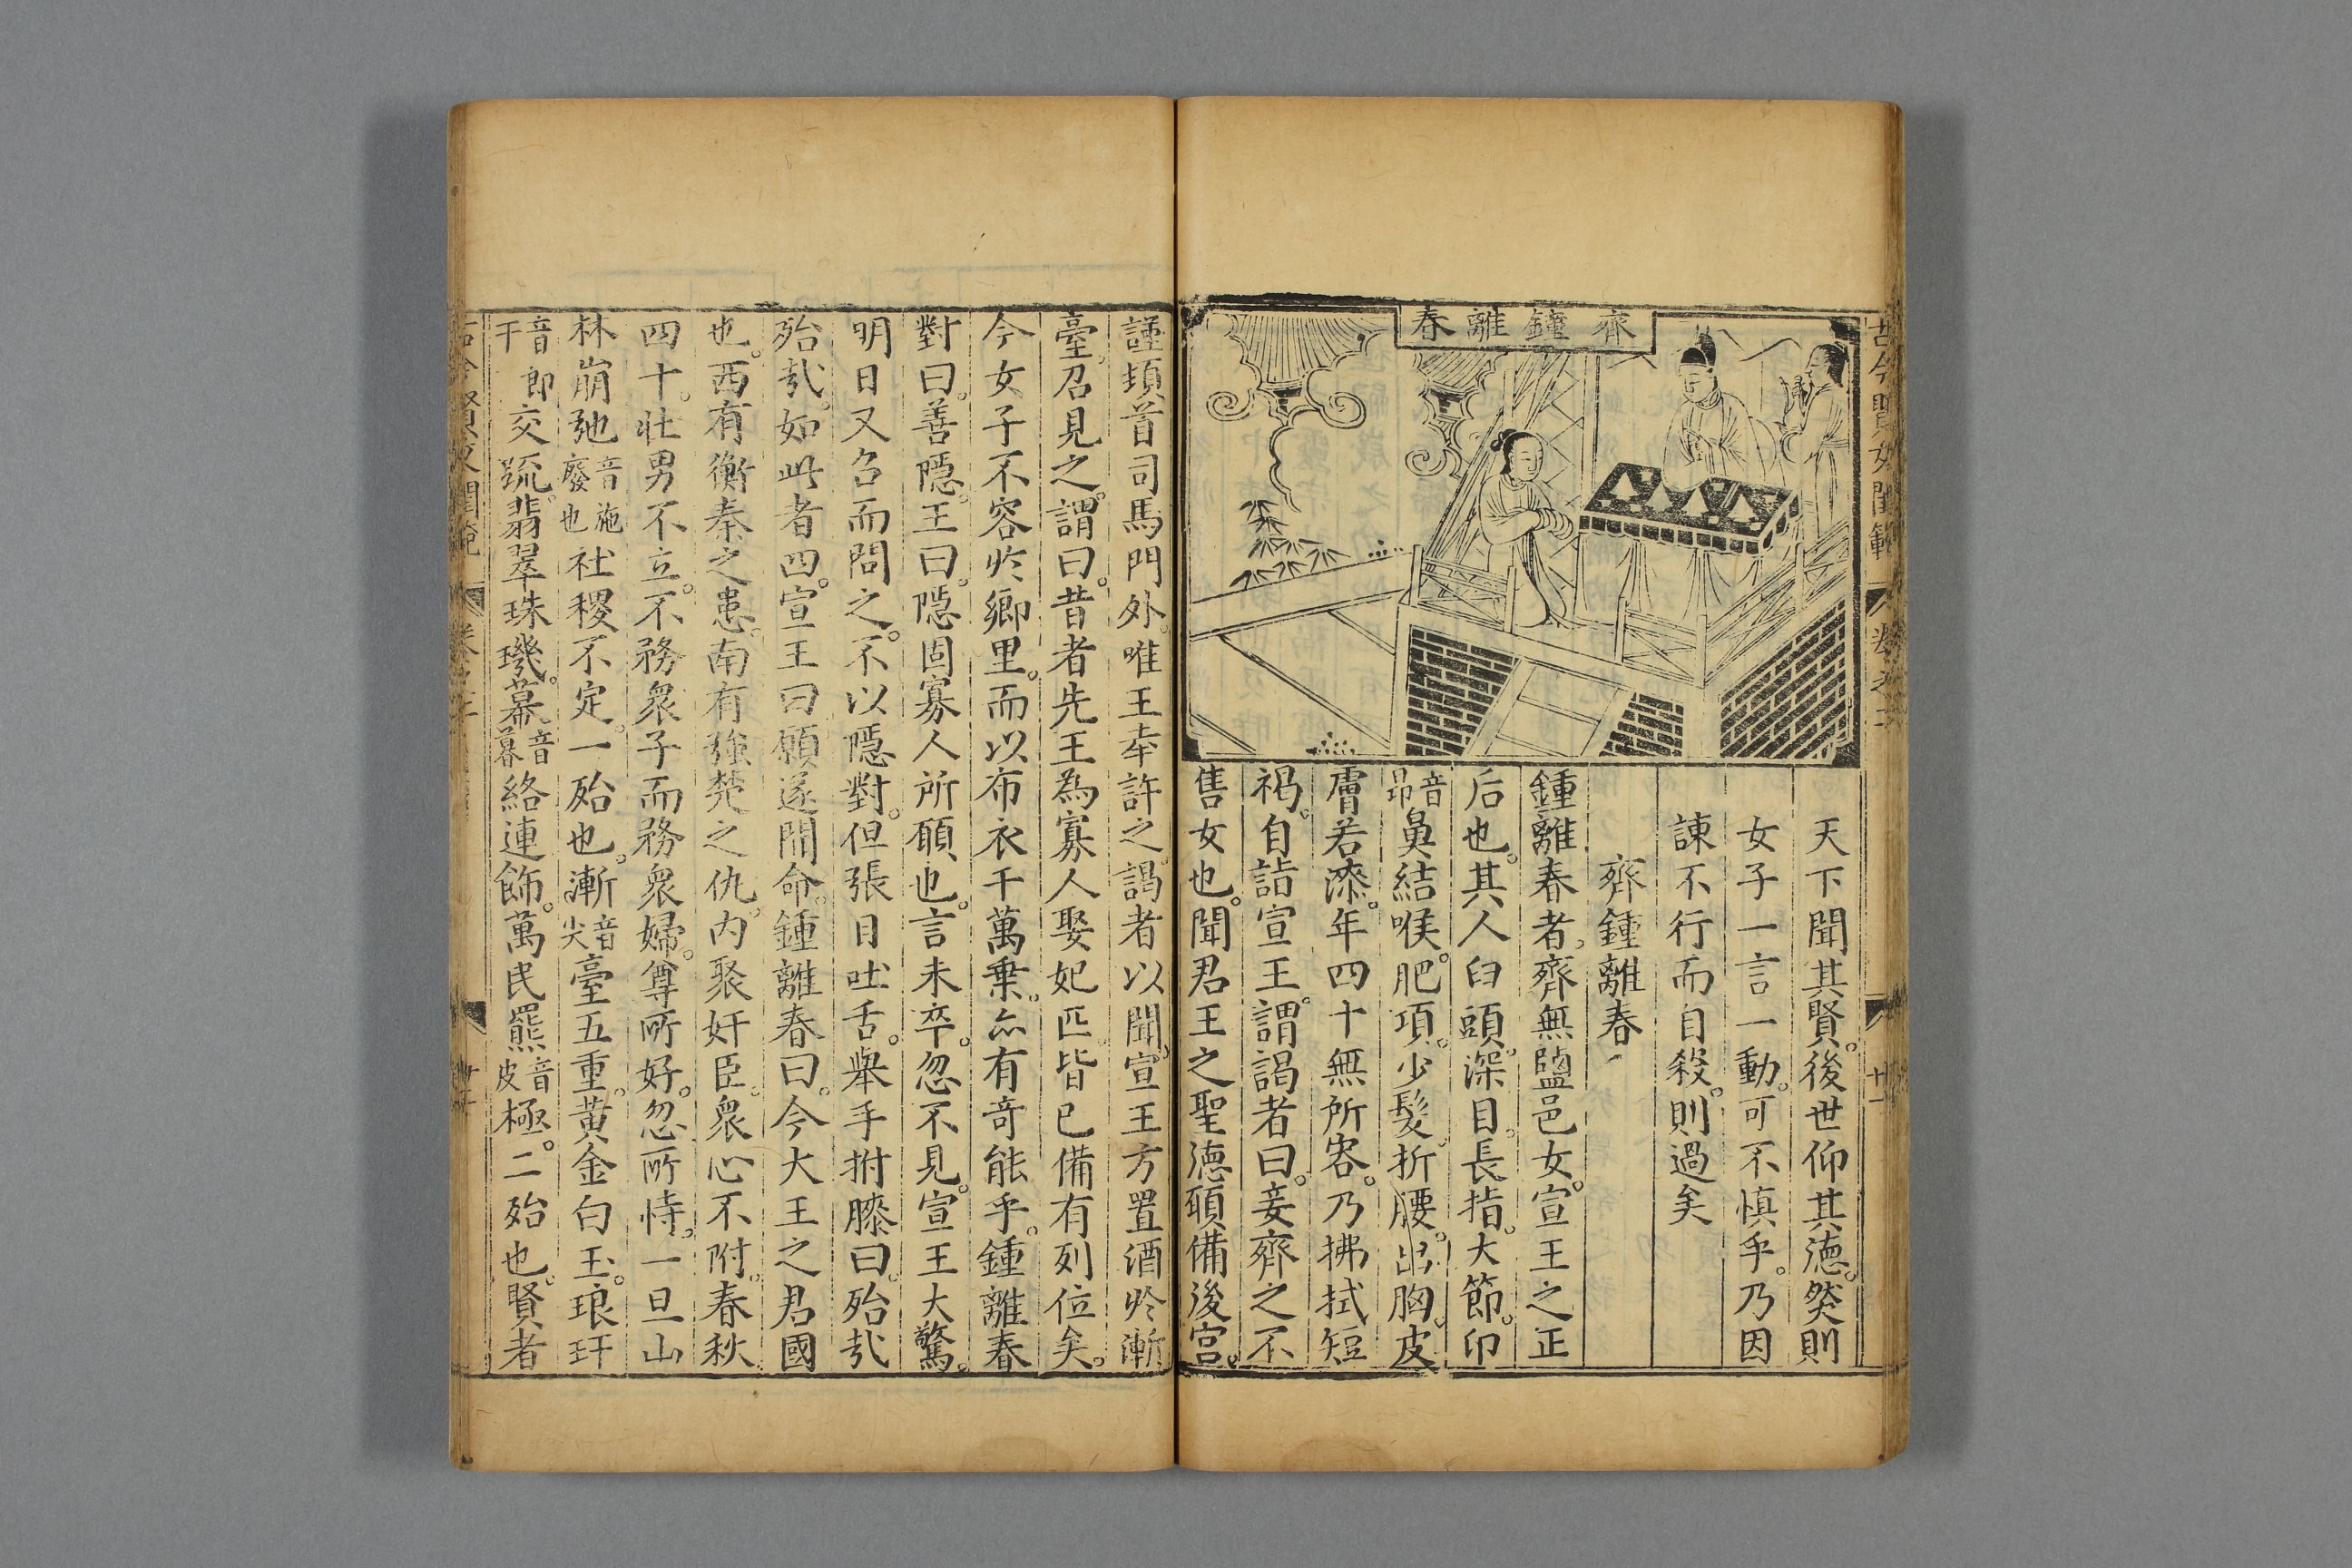 古今賢女閨範
卷之二
十一
齊鍾離春
天下聞其賢。後世仰其德。然則
女子一言一動。可不慎乎。乃因
諫不行而自殺。則過矣
齊鍾離春
鍾離春者。齊無鹽邑女。宣王之正
后也。其人臼頭。深目。長指。大節。卬
音昂鼻結喉。肥項。少髮。折腰。出胸。皮
膚若漆。年四十無所容。乃拂拭短
褐。自詣宣王。謂謁者曰。妾齊之不
售女也。聞君王之聖德。願備後宮。
謹頓首司馬門外。唯王幸許之。謁者以聞。宣王方置酒於漸
臺。召見之。謂曰。昔者先王為寡人娶妃匹。皆已備有列位矣。
今女子不容於鄉里。而以布衣干萬乗。亦有奇能乎。鍾離春
對曰。善隱。王曰。隱固寡人所願也。言未卒。忽不見。宣王大驚。
明日又召而問之。不以隱對。但張目吐舌。舉手拊膝曰。殆哉
殆哉。如此者四。宣王曰願遂聞命。鍾離春曰。今大王之君國
也。西有衡秦之患。南有強楚之仇。内聚奸臣。衆心不附。春秋
四十。壯男不立。不務衆子而務衆婦。尊所好。忽所恃。一旦山
林崩弛音施廢也社稷不定。一殆也。漸音尖臺五重。黃金白玉。琅玕
音干即交疏。翡翠珠璣。幕音暮絡連飾。萬民羆音皮極。二殆也。賢者
古今賢女閨範